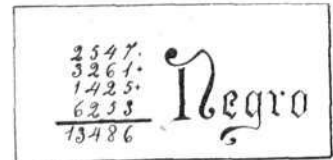 2547.
3261+
1425+
6253
13486
Negro